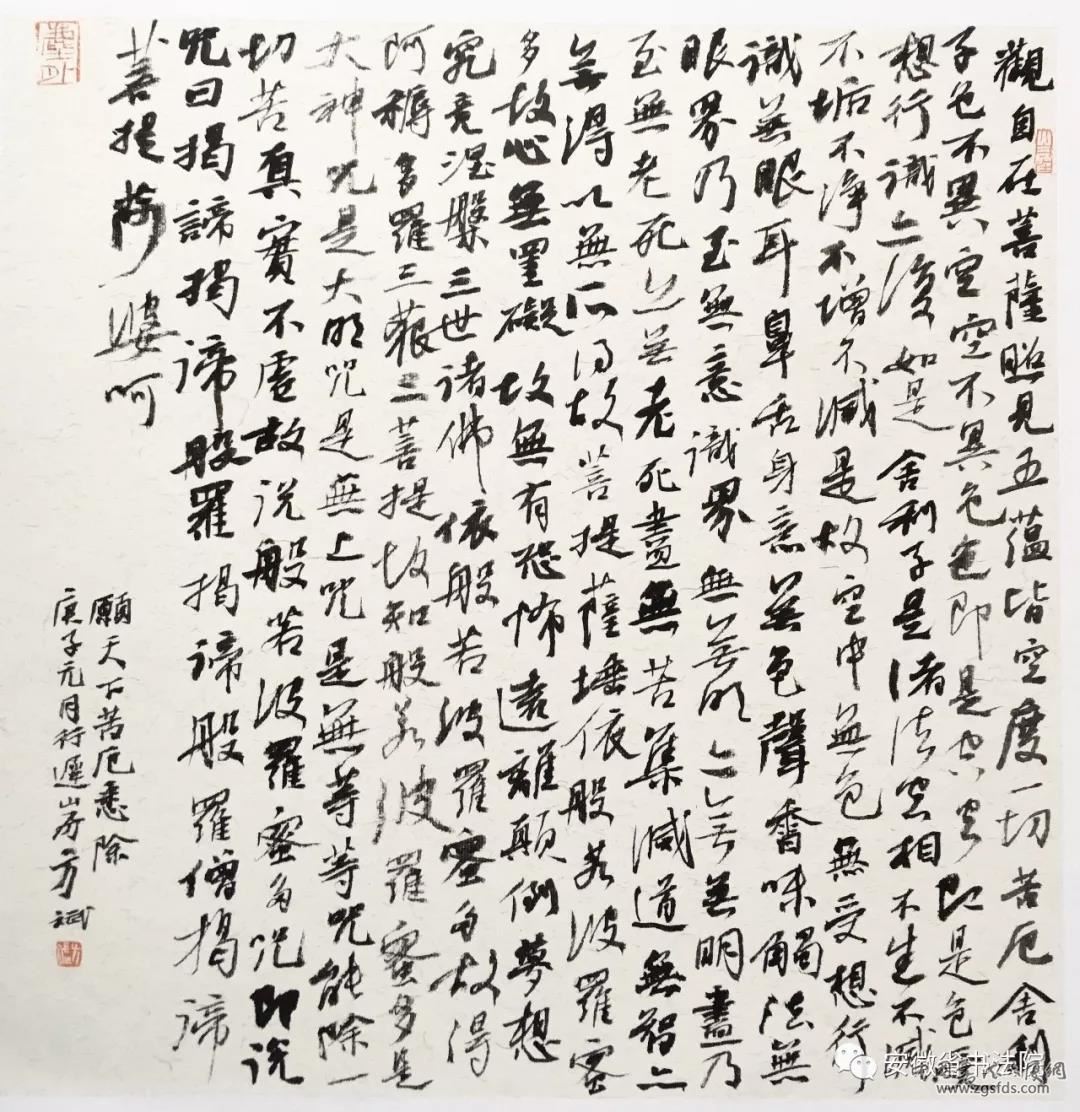 觀自在菩薩照見五蘊皆空度一切苦厄舍利
子色不異空空不異色色即是空空即是色受
想行識亦復如是舍利子是诸法空相不生不滅
不垢不淨不增不減是故空中無色無受想行
識無眼耳鼻舌身意無色聲香味觸法無
眼界乃至無意識界無無明亦無無明盡乃
至無老死亦無老死盡無苦集滅道無智亦
無得以無所得故菩提薩埵依般若波羅蜜
多故心無罣礙故無有恐怖遠離顛倒夢想
究竟涅槃三世诸佛依般若波羅蜜多故得
阿耨多羅三藐三菩提故知般若波羅蜜多是
大神咒是大明咒是無上咒是無等等咒能除一
切苦真實不虛故说般若波羅蜜多咒即说
咒曰揭諦揭諦般羅揭諦般羅僧揭諦
菩提莎婆呵
願天下苦厄悉除
庚子元月行遲山房方斌
安徽省书法院
www.zgsfds.com